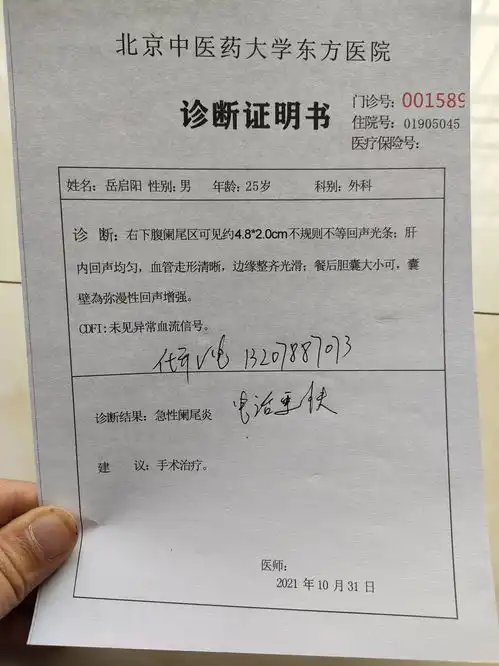 北京中医药大学东方医院
诊断证明书
门诊号:001589
住院号:01905045
医疗保险号:
姓名:岳启阳 性别:男 年龄:25岁 科别:外科
诊 断:右下腹阑尾区可见约4.8*2.0cm不规则不等回声光条;肝
内回声均匀,血管走形清晰,边缘整齐光滑;餐后胆囊大小可,囊
壁為弥漫性回声增强。
CDFI:未见异常血流信号。
13207887073
诊断结果:急性阑尾炎
电话
建 议:手术治疗。
医师:
2021 年 10 月 31 日